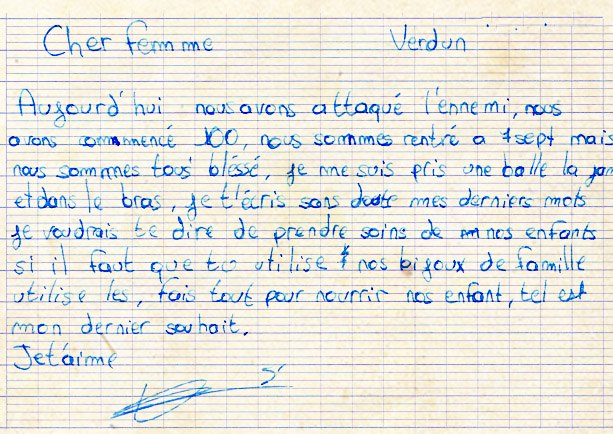 Cher femme Verdun
Aujourd'hui nous avons attaqué l'ennemi, nous
avons commencé 100, nous sommes rentré a 7 sept mais
nous sommes tous bléssé, je me suis pris une balle la jam
et dans le bras, je t'écris sans doute mes derniers mots
je voudrais te dire de prendre soins de nos enfants
si il faut que tu utilise nos bijoux de famille
utilise les, fais tout pour nourrir nos enfant, tel est
mon dernier souhait.
Je t'aime